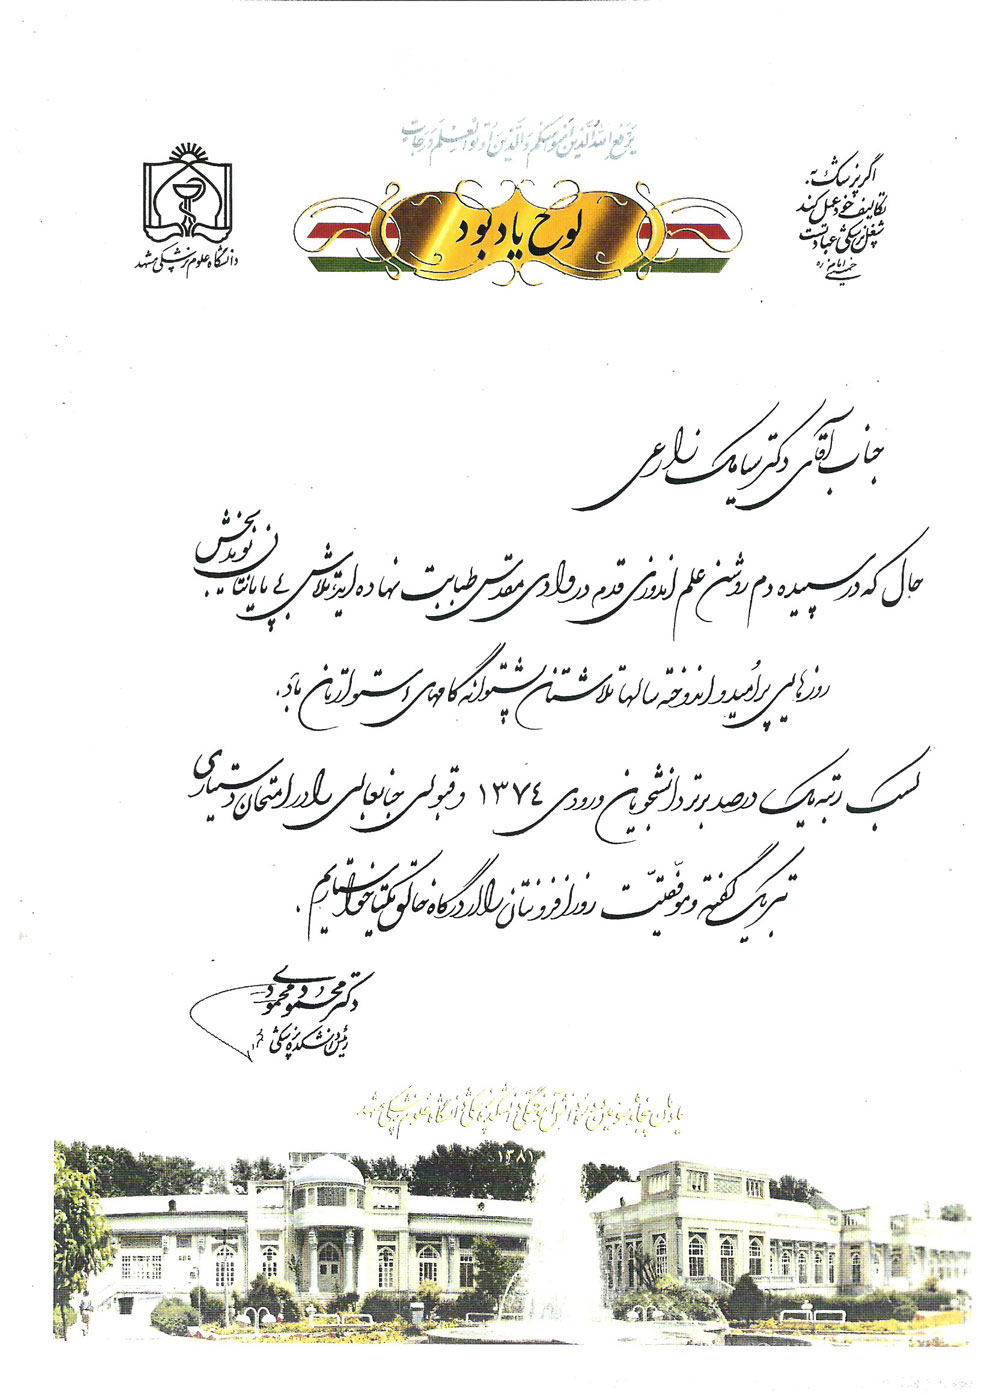 یرفع الله الذین امنوا منکم والذین اوتوا العلم درجات
لوح یادبود
اگر پزشک به
تکالیف خود عمل کند
شغل پزشکی عبادت است
امام خمینی ره
دانشگاه علوم پزشکی مشهد
جناب آقای دکتر سیامک زارعی
حال که در سپیده دم روشن علم اندوزی قدم در وادی مقدس طبابت نهاده اید، تلاش بی پایانتان نویدبخش
روزهایی پر امید و اندوخته سالها تلاشتان پشتوانه گامهای استوارتان باد.
کسب رتبه یک درصد برتر دانشجویان ورودی ۱۳۷٤ و قبولی جنابعالی را در امتحان دستیاری
تبریک گفته و موفقیت روزافزونتان را از درگاه خالق یکتا خواستاریم.
دکتر محمود محمودی
رئیس دانشکده پزشکی
دانش آموختگی دانشکده پزشکی دانشگاه علوم پزشکی مشهد
۱۳۸۱